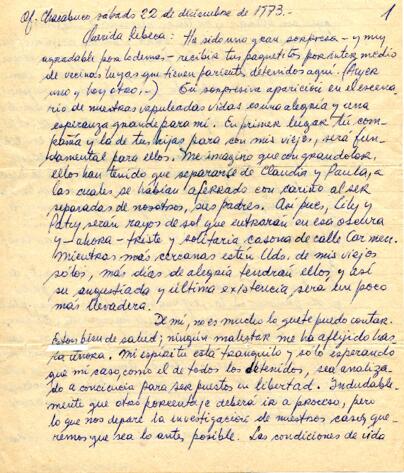 Of. Chacabuco sábado 22 de diciembre de 1973.-
1
Querida Rebeca: Ha sido una gran sorpresa - y muy
agradable por lo demás - recibir tus paquetitos por intermedio
de vecinos tuyos que tienen parientes detenidos aquí. (Ayer
uno y hoy otro,-) Tu sorpresiva aparición en el escena-
rio de nuestras vapuleadas vidas es una alegría y una
esperanza grande para mí. En primer lugar tu com-
pañía y la de tus hijas para con mis viejos, será fun-
damental para ellos. Me imagino que con gran dolor,
ellos han tenido que separarse de Claudia y Paula, a
las cuales se habían aferrado con cariño al ser
separadas de nosotros, sus padres. Así pues, Lily y
Paty, serán rayos de sol que entrarán en esa obscura
y - ahora - triste y solitaria casona de calle Carmen.
Mientras más cercanas estén Uds. de mis viejos
solos, más días de alegría tendrán ellos, y así
su angustiada y última existencia, será un poco
más llevadera.
De mí, no es mucho lo que te puedo contar.
Estoy bien de salud; ningún malestar me ha aflijido has-
ta ahora. Mi espíritu está tranquilo y sólo esperando
que mi caso, como el de todos los detenidos, sea analiza-
do a conciencia para ser puestos en libertad. Indudable-
mente que otro porcentaje deberá ir a proceso, pero
lo que nos depare la investigación de nuestros casos, que-
remos que sea lo antes posible. Las condiciones de vida